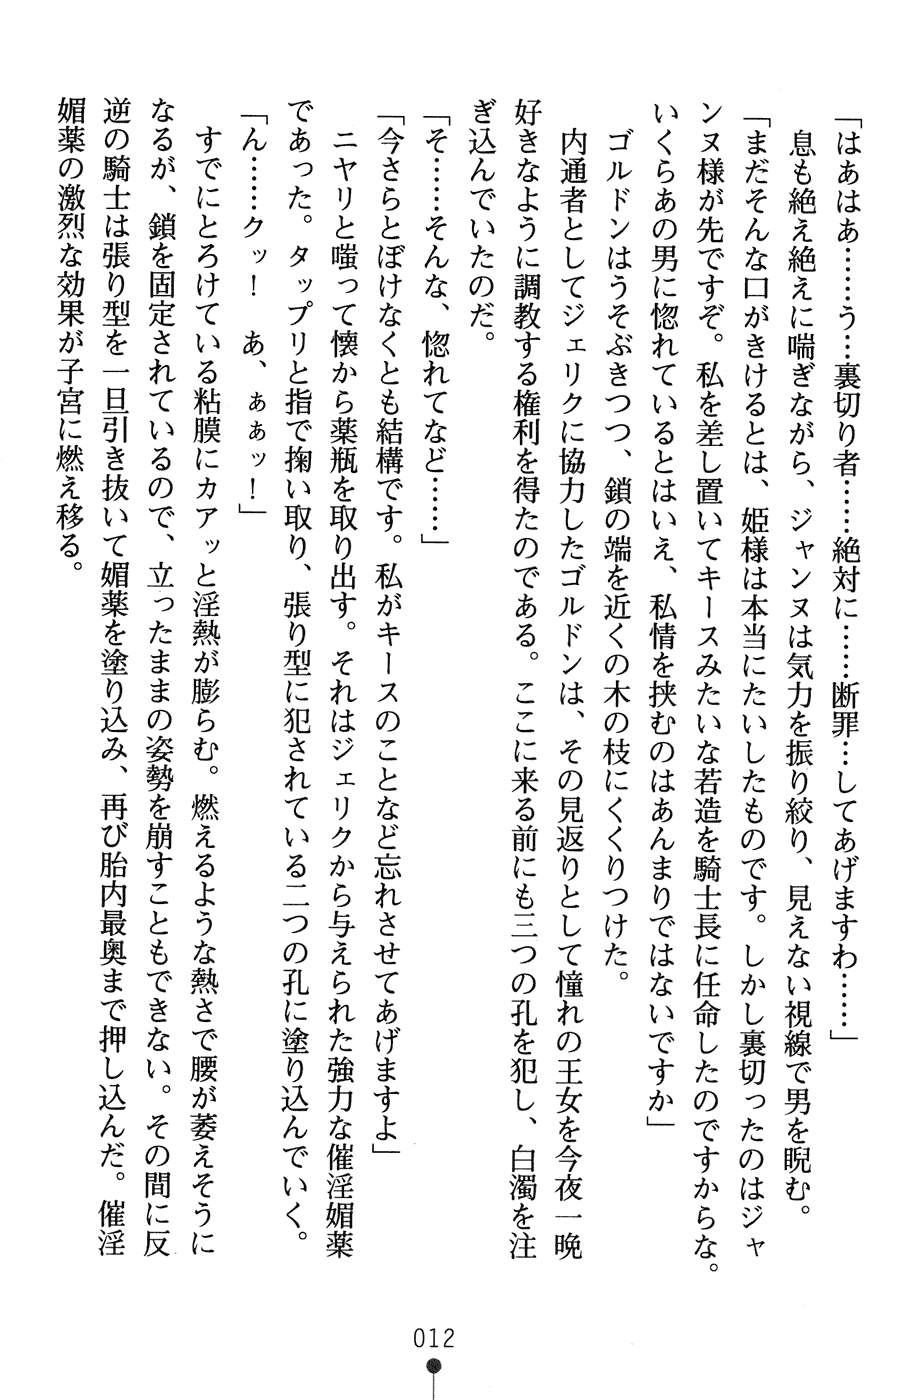 「はあはあ……う…裏切り者……絶対に……断罪…してあげますわ……」
息も絶え絶えに喘ぎながら、ジャンヌは気力を振り絞り、見えない視線で男を睨む。
「まだそんな口がきけるとは、姫様は本当にたいしたものです。しかし裏切ったのはジャ
ンヌ様が先ですぞ。私を差し置いてキースみたいな若造を騎士長に任命したのですからな。
いくらあの男に惚れているとはいえ、私情を挟むのはあんまりではないですか」
ゴルドンはうそぶきつつ、鎖の端を近くの木の枝にくくりつけた。
内通者としてジェリクに協力したゴルドンは、その見返りとして憧れの王女を今夜一晩
好きなように調教する権利を得たのである。ここに来る前にも三つの孔を犯し、白濁を注
ぎ込んでいたのだ。
「そ……そんな、惚れてなど……」
「今さらとぼけなくとも結構です。私がキースのことなど忘れさせてあげますよ」
ニヤリと嗤って懐から薬瓶を取り出す。それはジェリクから与えられた強力な催淫媚薬
であった。タップリと指で掬い取り、張り型に犯されている二つの孔に塗り込んでいく。
「ん……クッ！　あ、ぁぁッ！」
すでにとろけている粘膜にカアッと淫熱が膨らむ。燃えるような熱さで腰が萎えそうに
なるが、鎖を固定されているので、立ったままの姿勢を崩すこともできない。その間に反
逆の騎士は張り型を一旦引き抜いて媚薬を塗り込み、再び胎内最奥まで押し込んだ。催淫
媚薬の激烈な効果が子宮に燃え移る。
012